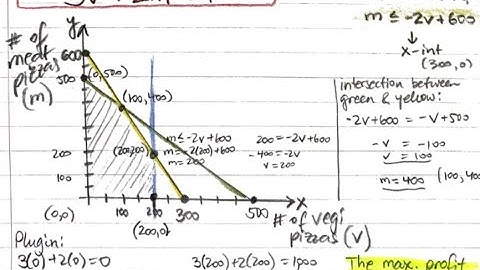 y
# of
meat
pizzas
(m)
600
500
(0,500)
(100,400)
200
100
(200,200)
m ≤ -2v+600
m = -2(200)+600
m = 200
200 = -2v+600
-400 = -2v
v = 200
x
(0,0)
100
200
300
500
(200,0)
# of vegi
pizzas (v)
m ≤ -2v+600
↓
x-int
(300,0)
intersection between
green & yellow:
-2v+600 = -v+500
-v = -100
v = 100
m = 400
(100,40
Plugin:
3(0)+2(0)=0
3(200)+2(200)=1,000
The max. profit